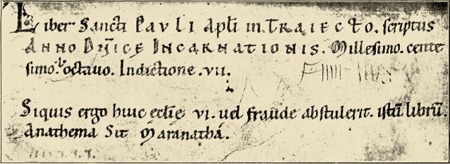 Liber Sancti Pauli Apl̄i in Traiecto. scriptus
Anno Dn̄ice Incarnationis. Millesimo. cente
simo. octauo. Indictione. vii.
Siquis ergo huic eccl̄ie vi. uel fraude abstulerit. istū librū.
Anathema Sit Maranatha.